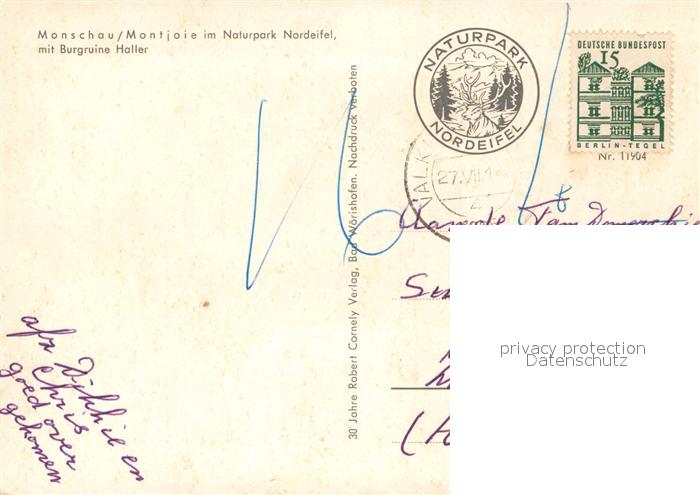 Monschau/Montjoie im Naturpark Nordeifel,
mit Burgruine Haller
NATURPARK
NORDEIFEL
DEUTSCHE BUNDESPOST
15
BERLIN-TEGEL
Nr. 11904
VALK
27.VII.1
30 Jahre Robert Cornely Verlag, Bad Wörishofen. Nachdruck verboten
Fam
afz
en
Chris
goed over
gekomen
privacy protection
Datenschutz